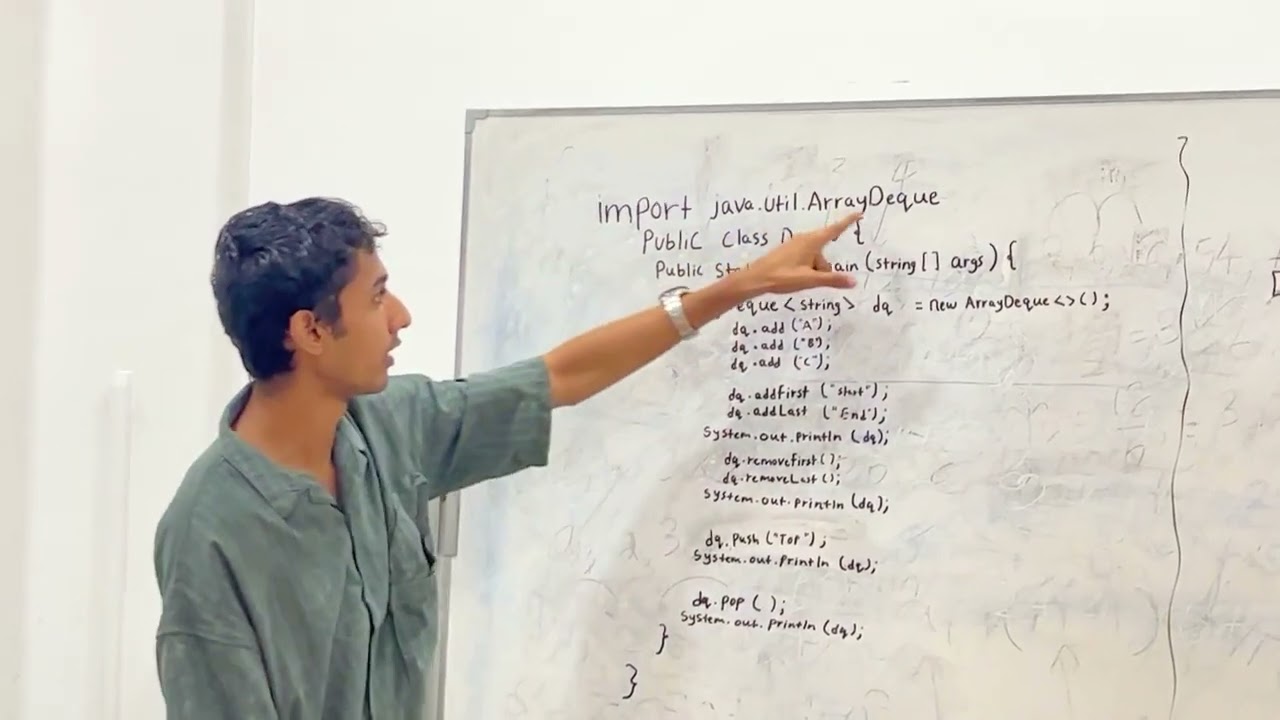 import java.util.ArrayDeque
Public Class {
Public main (string [] args) {
eque < string> dq = new ArrayDeque <>();
dq.add ("A");
dq.add ("B");
dq.add ("C");
dq.addFirst ("Start");
dq.addLast ("End");
System.out.println (dq);
dq.removeFirst();
dq.removeLast();
System.out.println (dq);
dq.Push ("Top");
System.out.println (dq);
dq.pop ( );
System.out.println (dq);
}
}